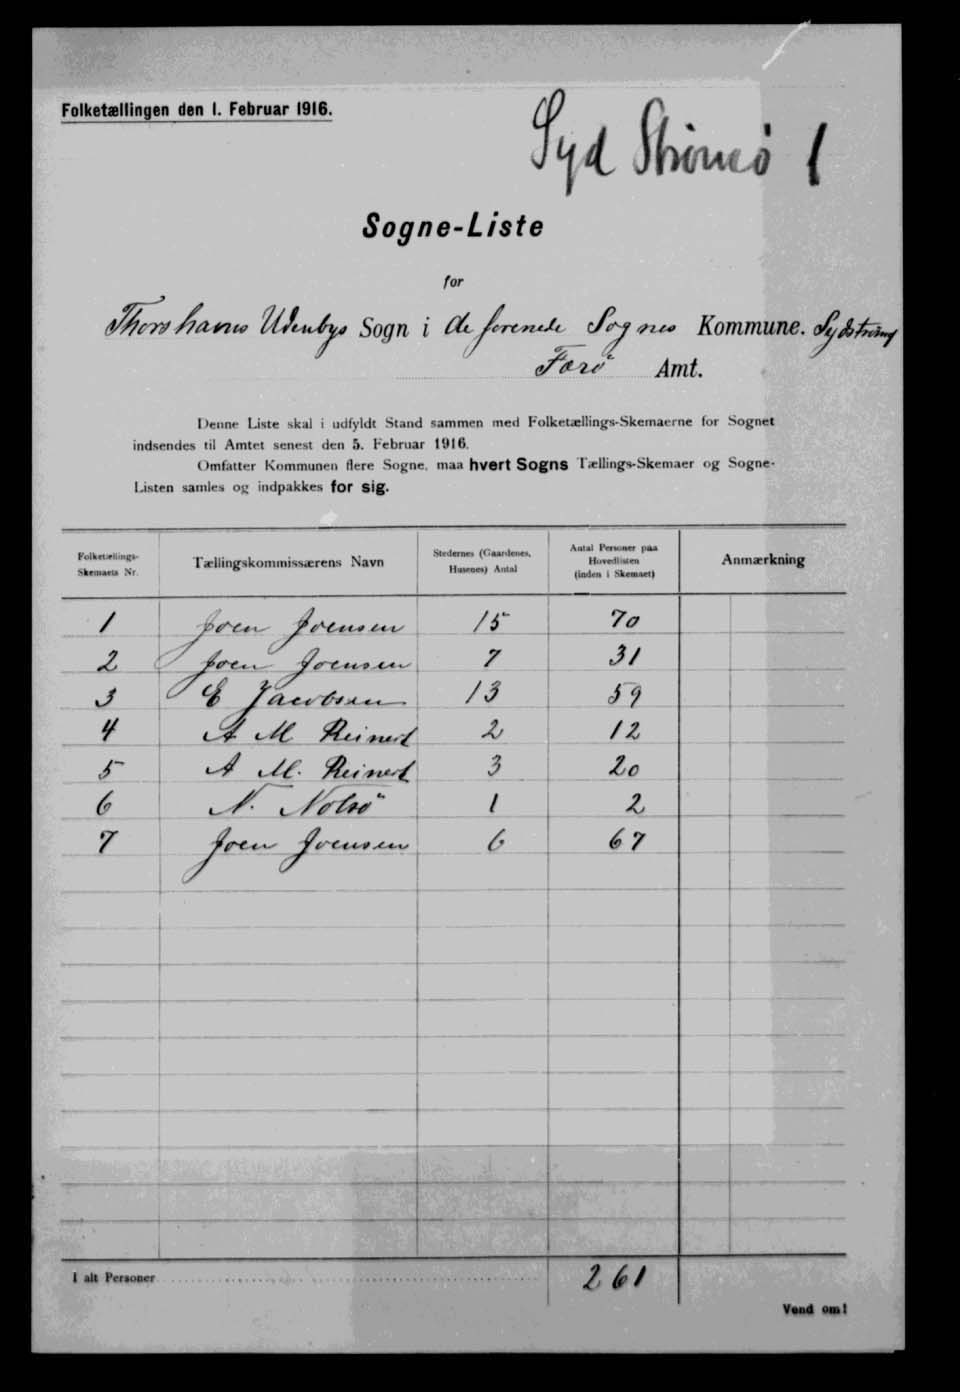 Folketællingen den 1. Februar 1916.
Syd Strömö 1
Sogne-Liste
for
Thorshavns Udenbys Sogn i de forenede Sognes Kommune.
Færö Amt.
Denne Liste skal i udfyldt Stand sammen med Folketællings-Skemaerne for Sognet
indsendes til Amtet senest den 5. Februar 1916.
Omfatter Kommunen flere Sogne, maa hvert Sogns Tællings-Skemaer og Sogne-
Listen samles og indpakkes for sig.
Folketællings-Skemaets Nr. Tællingskommissærens Navn Stedernes (Gaardenes, Husenes) Antal Antal Personer paa Hovedlisten (inden i Skemaet) Anmærkning
1 Joen Joensen 15 70
2 Joen Joensen 7 31
3 E Jacobsen 13 59
4 A M Reinert 2 12
5 A M. Reinert 3 20
6 N. Nolsö 1 2
7 Joen Joensen 6 67
I alt Personer 261
Vend om!